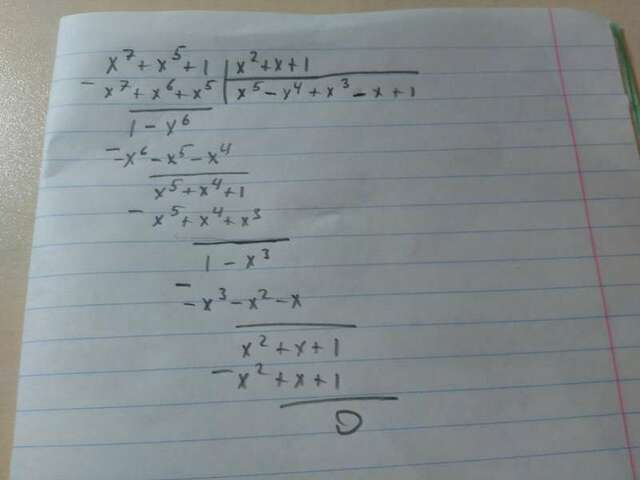 x⁷ + x⁵ + 1 | x² + x + 1
- x⁷ + x⁶ + x⁵ | x⁵ - x⁴ + x³ - x + 1
1 - x⁶
- -x⁶ - x⁵ - x⁴
x⁵ + x⁴ + 1
- x⁵ + x⁴ + x³
1 - x³
- -x³ - x² - x
x² + x + 1
- x² + x + 1
0